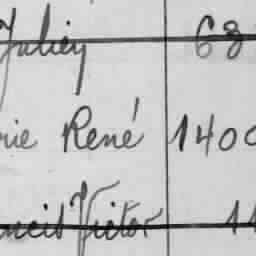 Julien 68
rie René 1400
ncis Victor 11